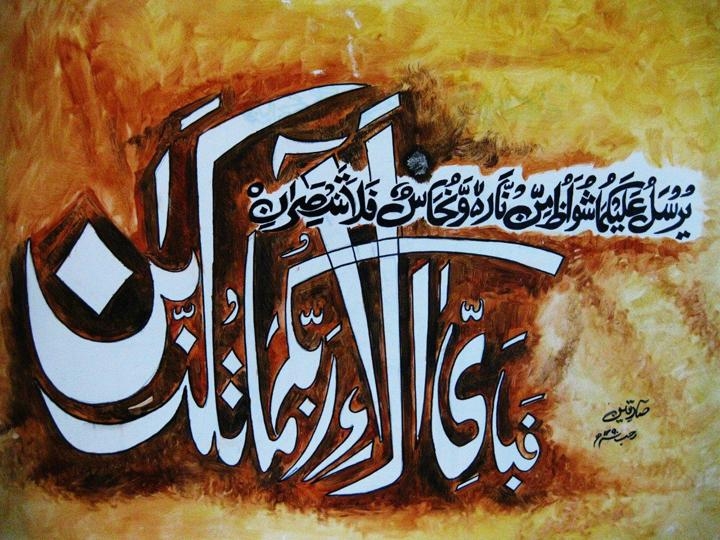 يُرْسَلُ عَلَيْكُمَا شُوَاظٌ مِّن نَّارٍ وَّنُحَاسٌ فَلَا تَنتَصِرَانِ
فَبِأَيِّ آلَاءِ رَبِّكُمَا تُكَذِّبَانِ
صادقین